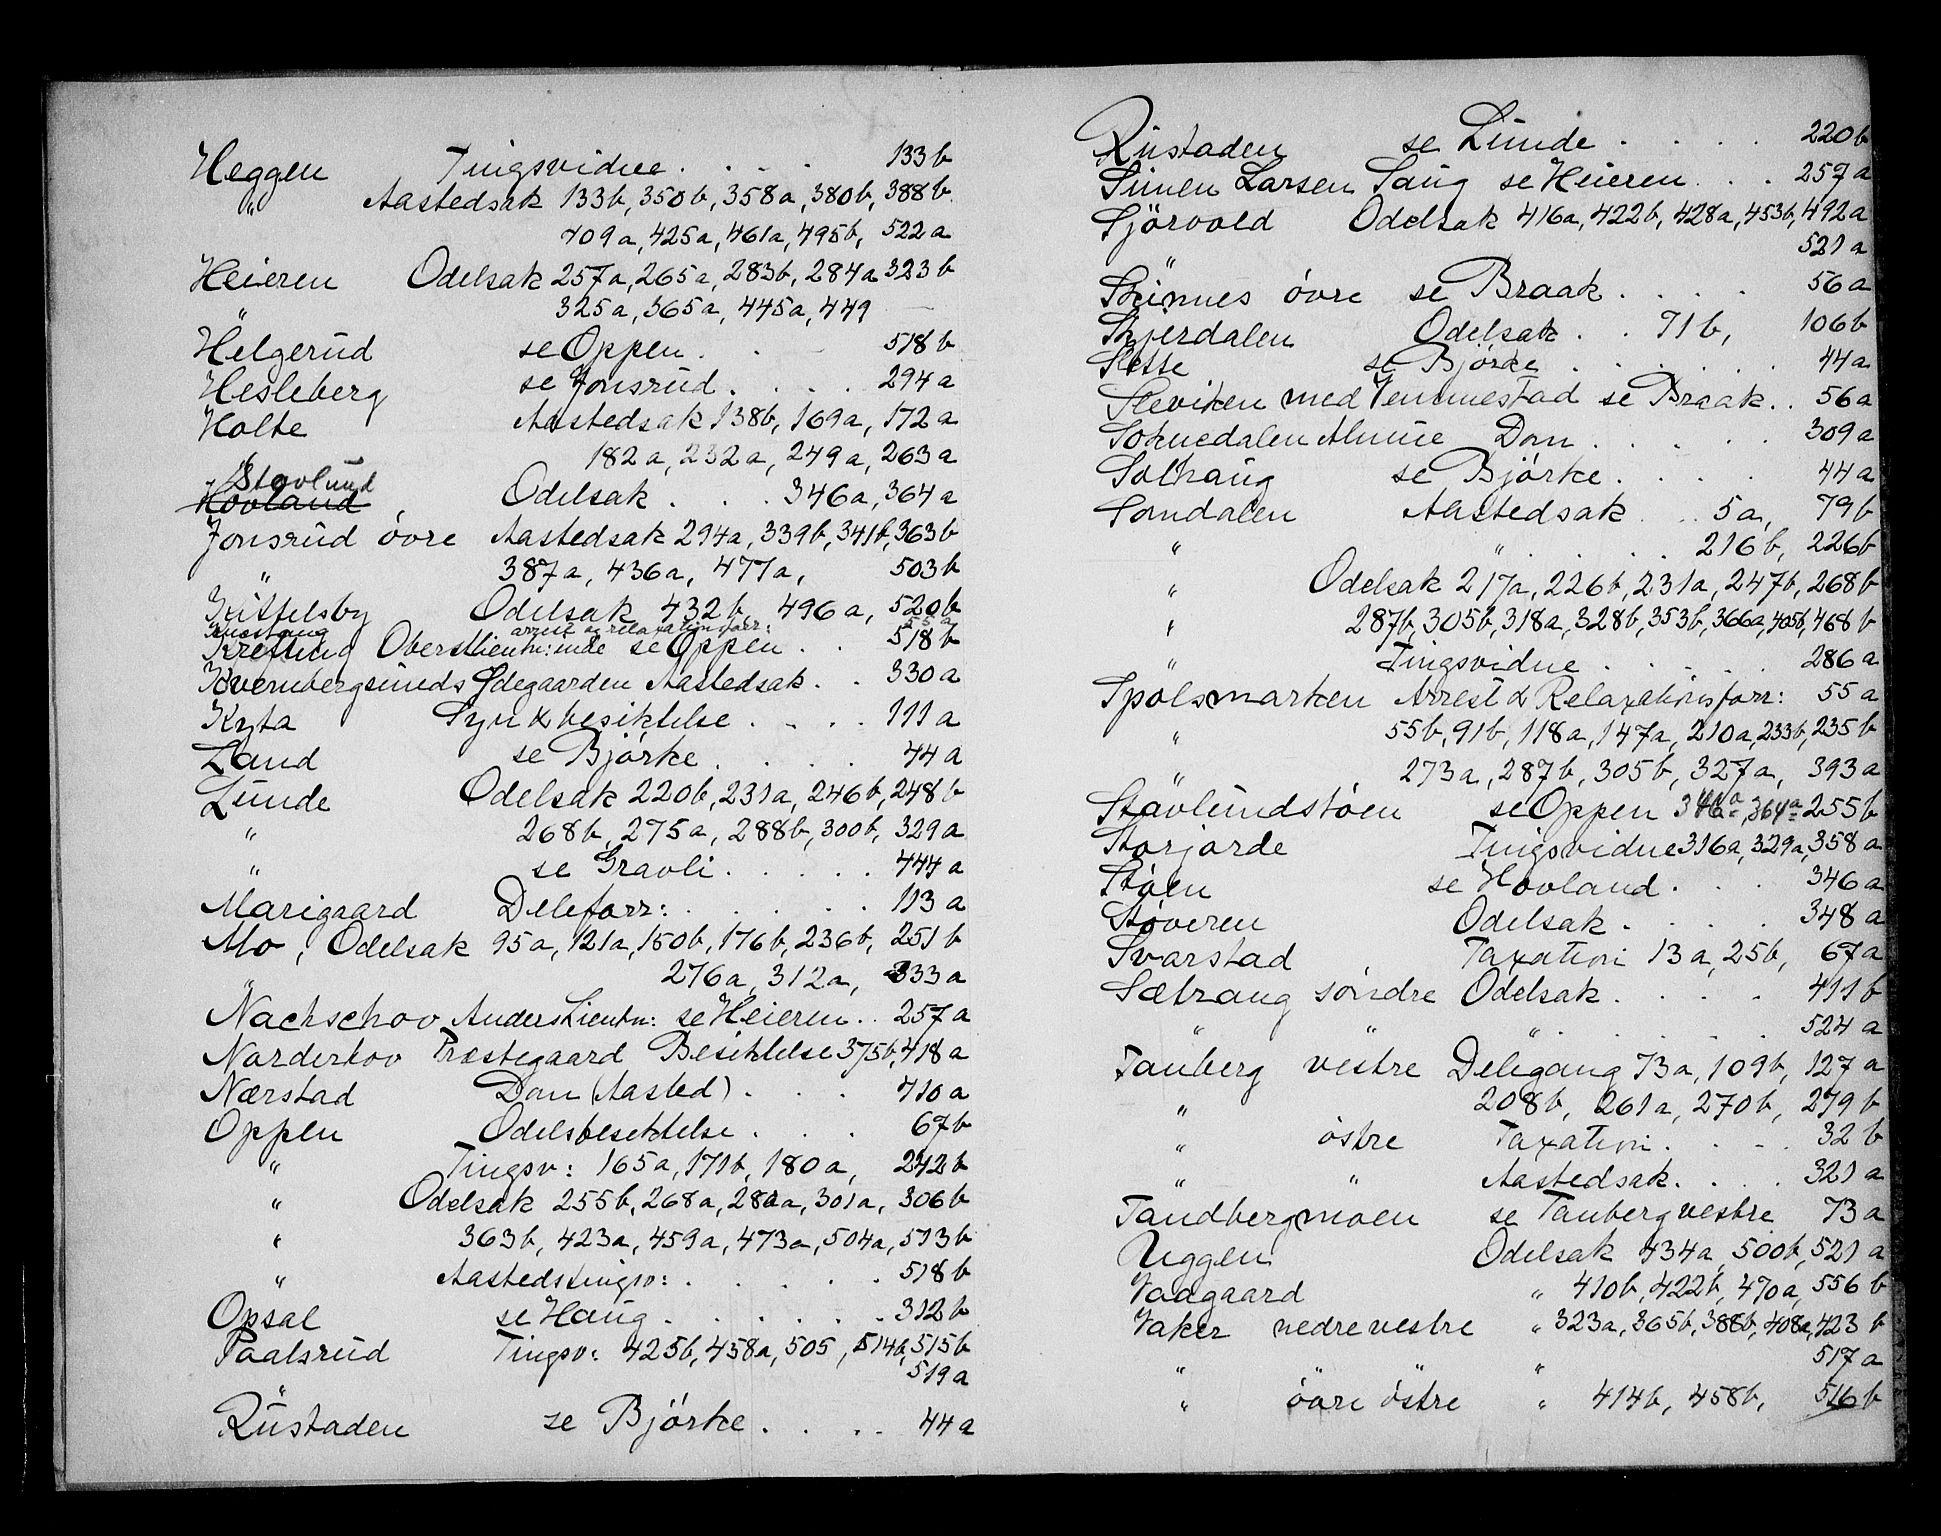 Heggen Tingsvidne . . . . 133 b
" Aastedsak 133b, 350b, 358a, 380b, 388b.
409a, 425a, 461a, 495b, 522a
Heieren Odelsak 257a, 265a, 283b, 284a 323b
" 325a, 365a, 445a, 449
Helgerud se Oppen . . . 518b
Hesleberg se Jonsrud . . . . 294a
Holte Aastedsak 138b, 169a, 172a
" 182a, 232a, 249a, 263a
Stovlund
Hovland, Odelsak . . . 346a, 364a
Jonsrud övre Aastedsak 294a, 339b, 341b, 363b
" 387a, 436a, 477a, 503b
Kittelsby Odelsak 432b, 496a, 520b
arrest og relaxationsforr: 55a
Krefting Oberstlieutn: se Oppen . . 518b
Kvernbergsunds Ödegaarden Aastedsak . . 330a
Kyta Syn & besiktelse . . . . 111a
Land se Björke . . . . 44a
Lunde Odelsak 220b, 231a, 246b, 248b
" 268b, 275a, 288b, 300b, 329a
" se Gravli . . . . . 444a
Marigaard Deleforr: . . . . . 113a
Mo, Odelsak 95a, 121a, 150b, 176b, 236b, 251b
" 276a, 312a, 333a
Nachschov Anders Lieutn: se Heieren . . 257a
Norderhov Præstegaard Besiktelse 375b, 418a
Nærstad Dom (Aasted) . . . 410a
Oppen Odelsbesiktelse . . . 67b
" Tingsv: 165a, 171b, 180a, 242b
" Odelsak 255b, 268a, 280a, 301a, 306b
" 363b, 423a, 459a, 473a, 504a, 513b
" Aastedstingsv: . . . . . 518b
Opsal se Haug . . . . . . 312b
Paalsrud Tingsv: 425b, 458a, 505, 514b, 515b
" 519a
Rustaden se Björke . . . . 44a
Rustaden se Lunde . . . . 220b
Simen Larsen Saug se Heieren . . . 257a
Sjörvold Odelsak 416a, 422b, 428a, 453b, 492a
" 521a
Skinnes övre se Braak . . . . 56a
Skjerdalen Odelsak . . 71b, 106b
Slette se Björke . . . . . . 44a
Sleviken med Vemmestad se Braak . . 56a
Soknedalen Alminne Dom . . . . . 309a
Solhaug se Björke . . . . 44a
Somdalen Aastedsak . . 5a, 79b
" " . . . . . 216b, 226b
" Odelsak 217a, 226b, 231a, 247b, 268b
" 287b, 305b, 318a, 328b, 353b, 366a, 405b, 468b
" Tingsvidne . . . . . 286a
Spolsmarken Arrest & Relaxationsforr: 55a
" 55b, 91b, 118a, 147a, 210a, 233b, 235b
" 273a, 287b, 305b, 327a, 393a
Stavlundstöen se Oppen 346a, 364a 255b
Storjorde Tingsvidne 316a, 329a, 358a
Stöen se Hovland . . . 346a
Stöveren Odelsak . . . . 348a
Svarstad Taxation 13a, 25b, 67a
Sætrang söndre Odelsak . . . . 411b
" " " . . . . . 524a
Tanberg vestre Delegang 73a, 109b, 127a
" 208b, 261a, 270b, 279b
" östre Taxation . . . 32b
" " Aastedsak . . . . 321a
Tandbergmoen se Tanberg vestre 73a
Uggen Odelsak 434a, 500b, 521a
Vaagaard " 410b, 422b, 470a, 556b
Vaker nedre vestre " 323a, 365b, 388b, 408a, 423b
" " " 517a
" övre östre " 414b, 458b, 516b